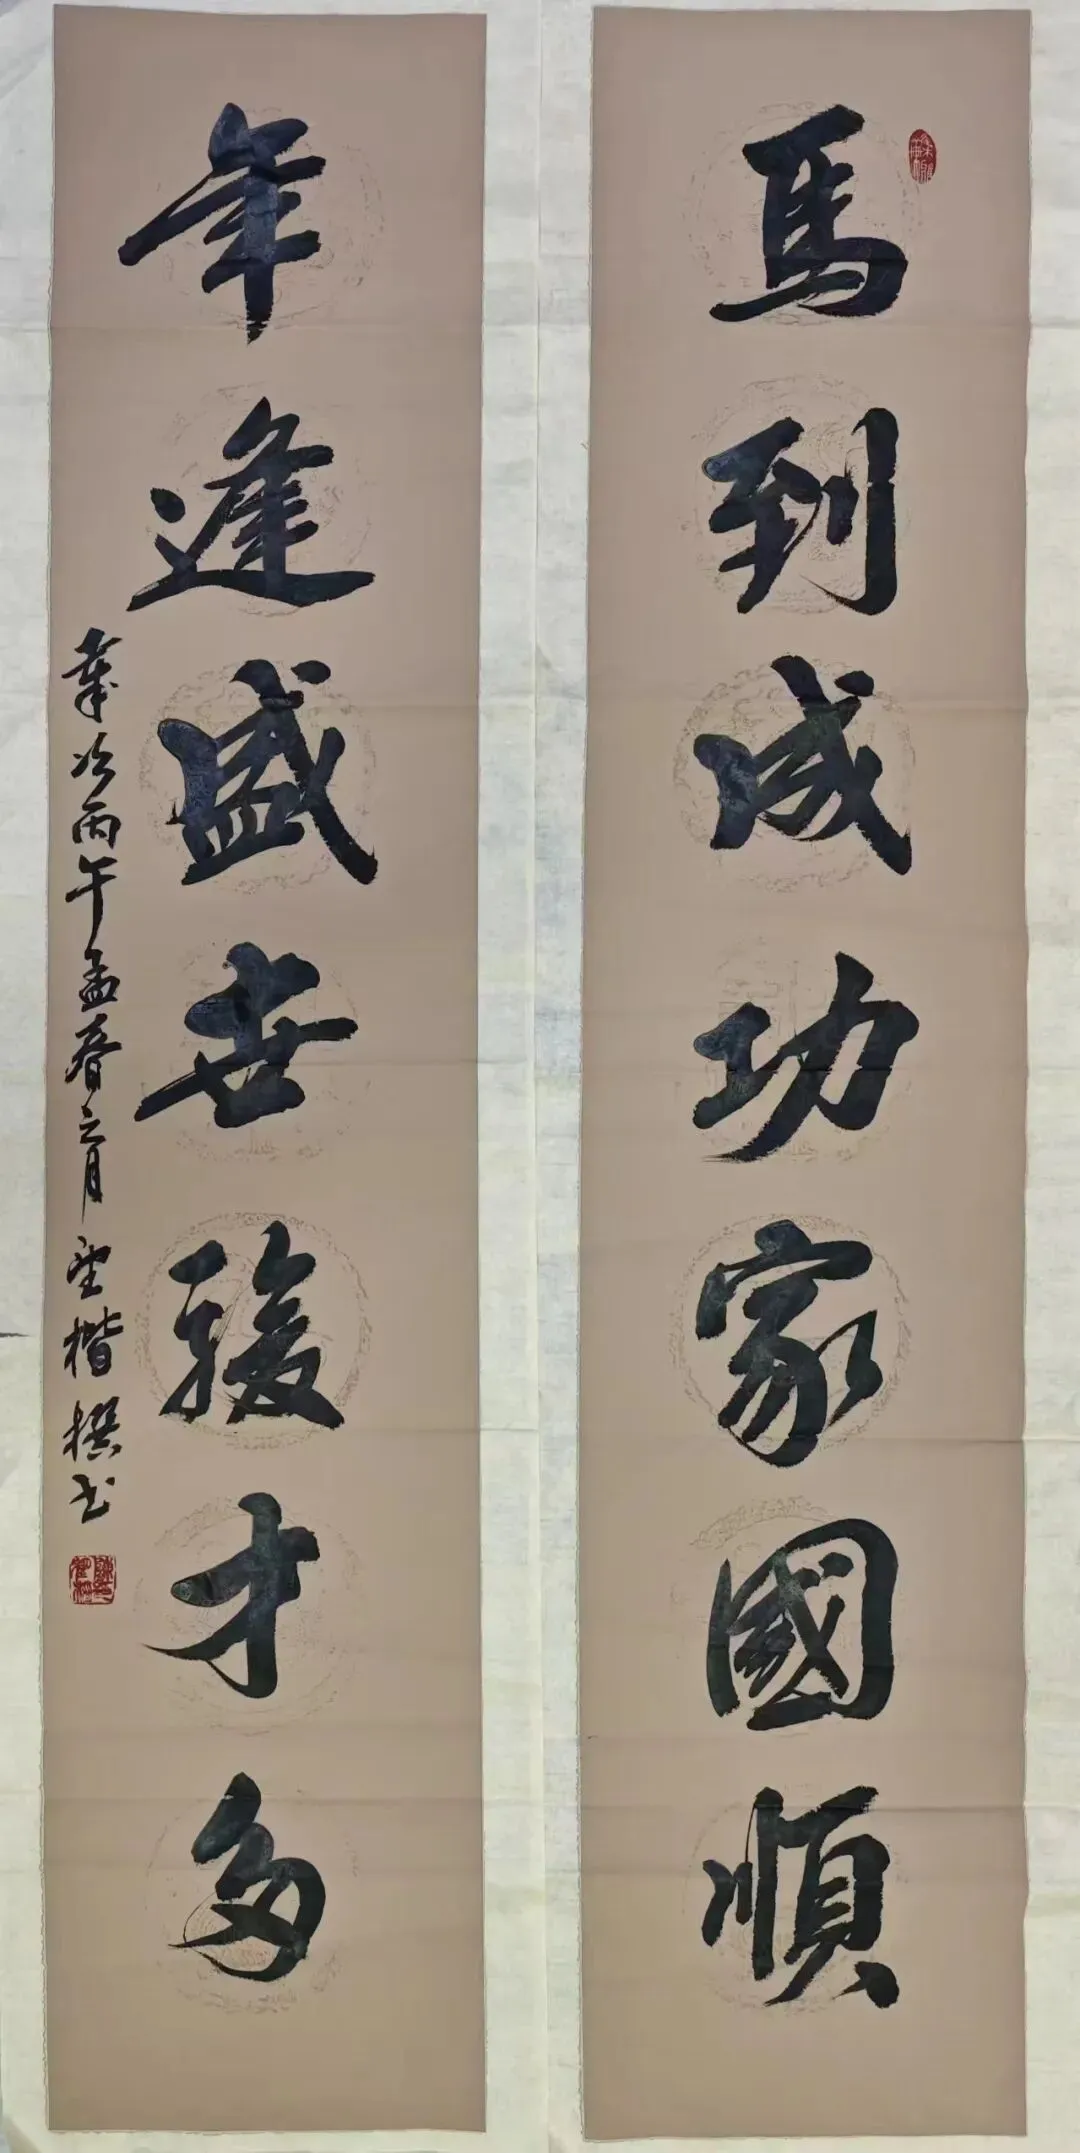 馬到成功家國順
年逢盛世駿才多
歲次丙午孟春之月聖楷撰书